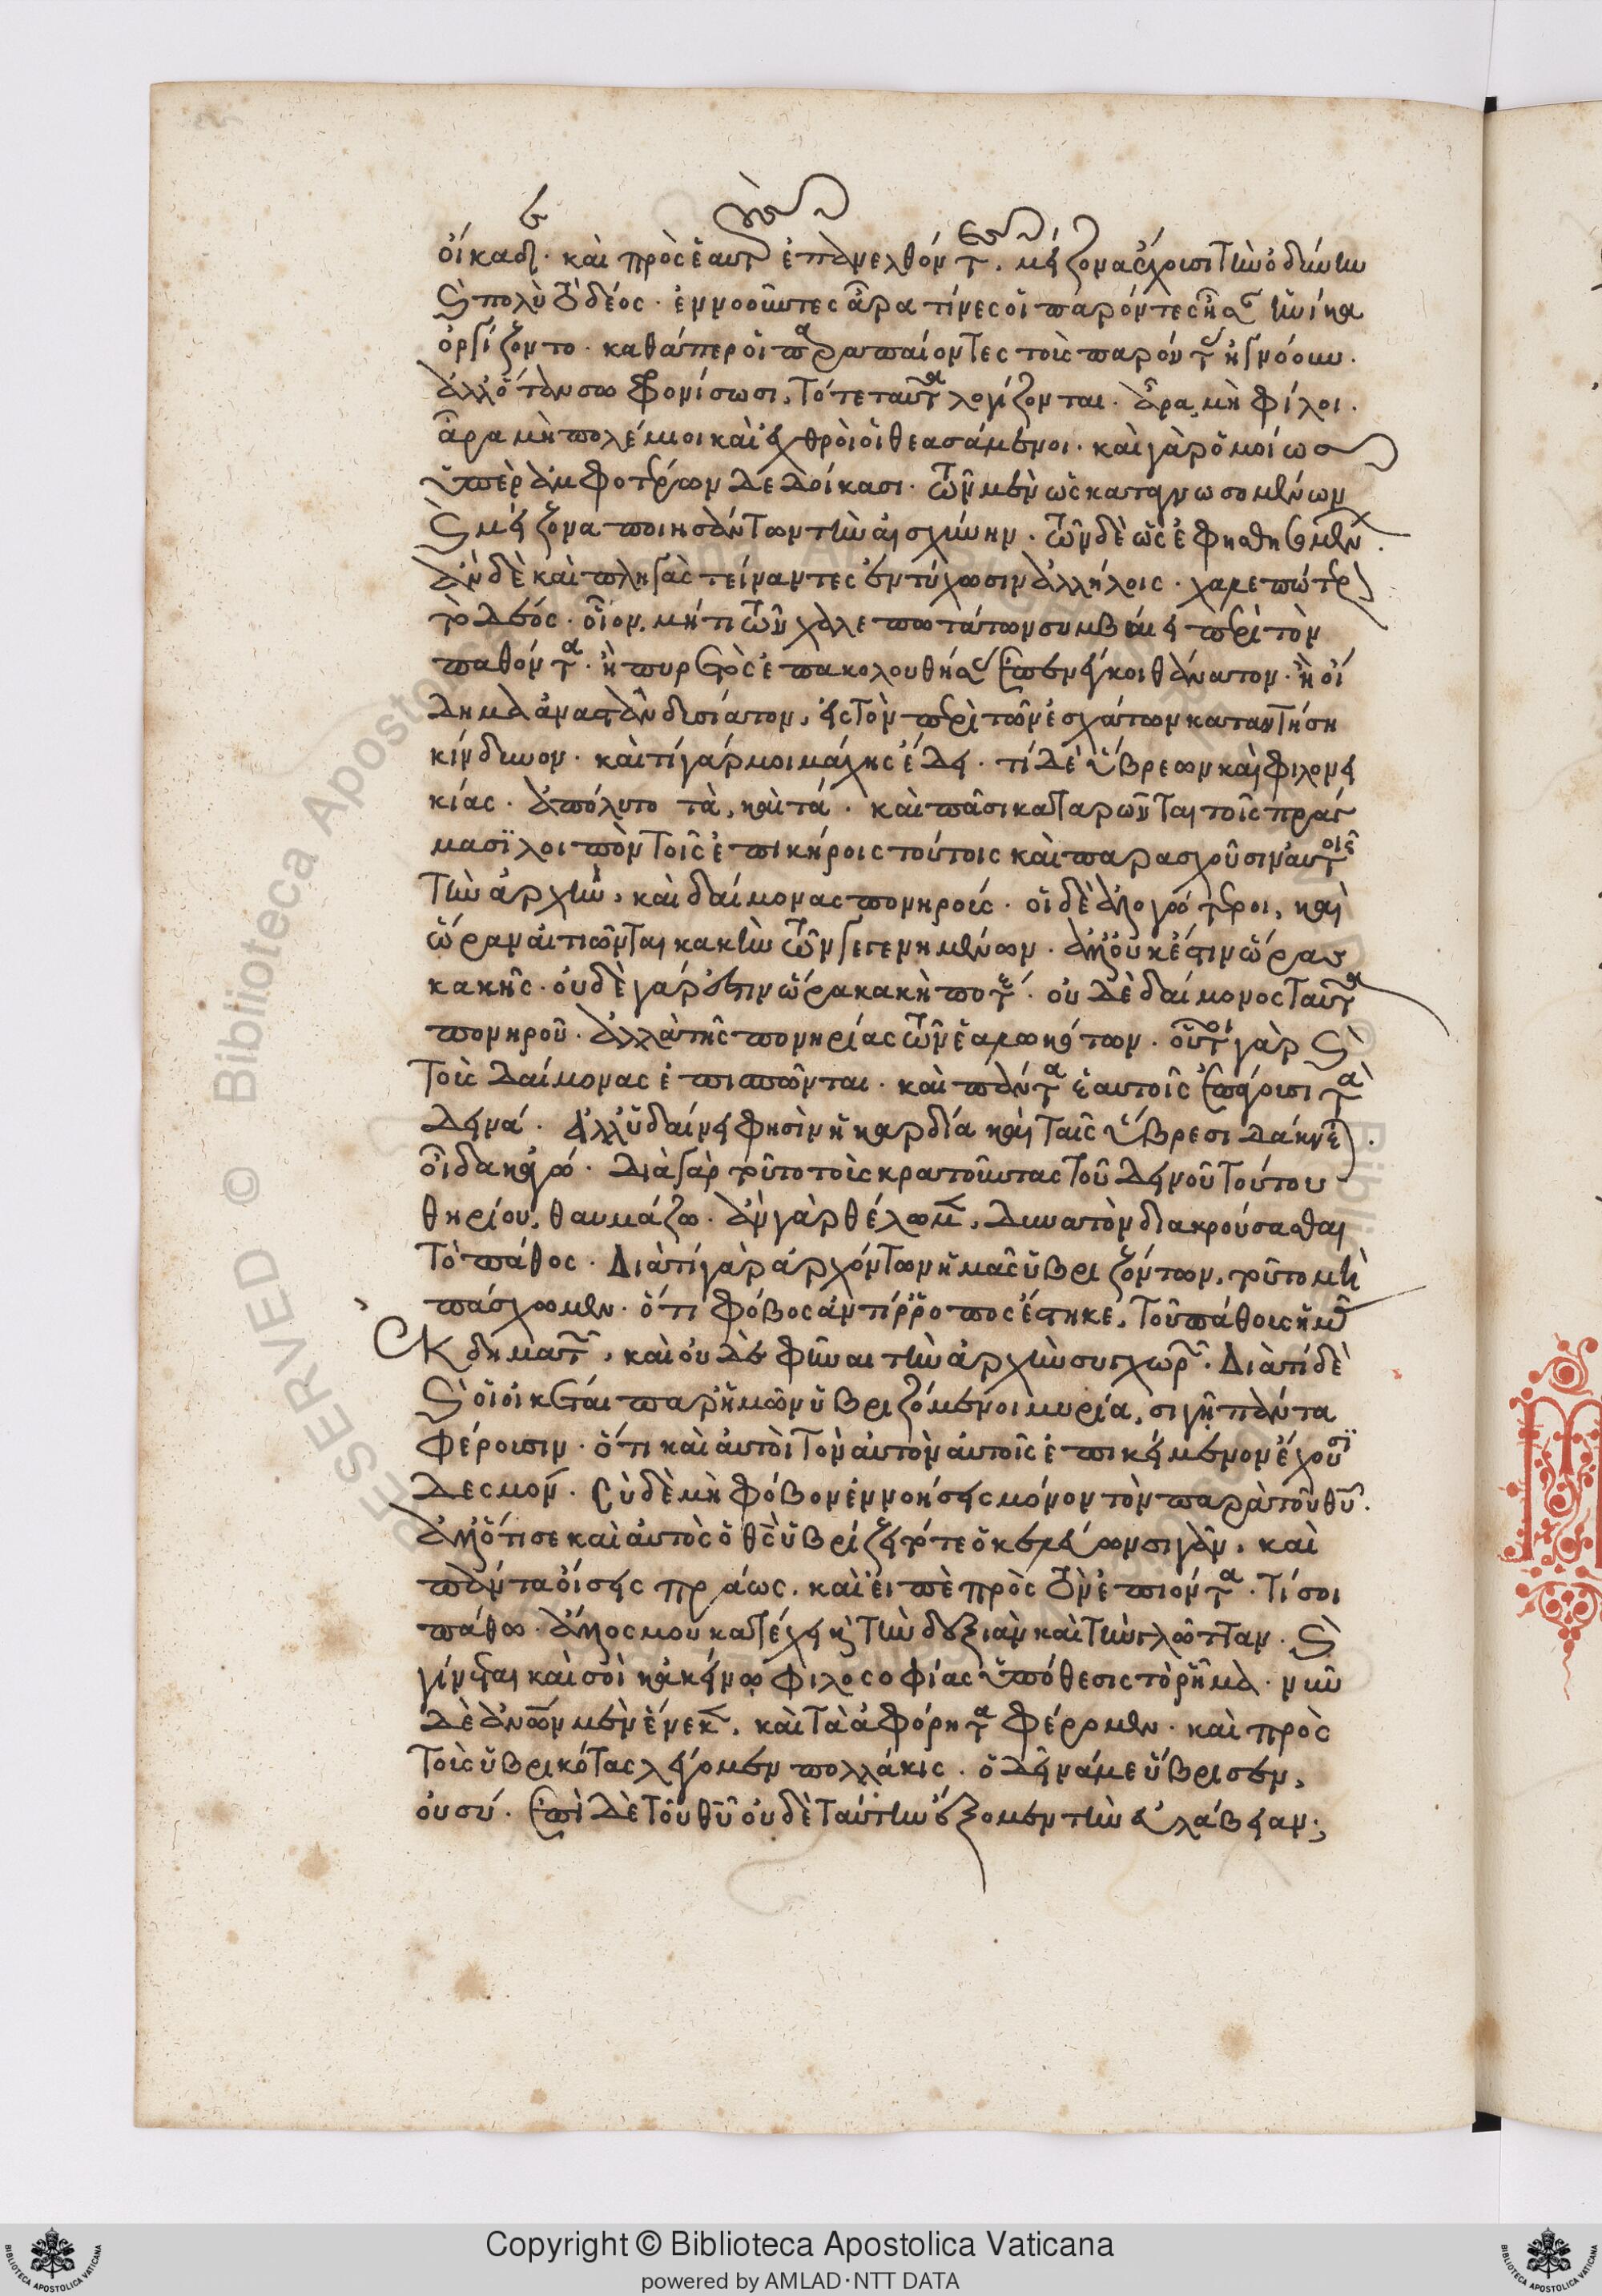 οἴκαδε. καὶ πρὸς ἑαυτοὺς ἐπανελθόντες, μείζονα ἔχουσι τὴν ὀδύνην
καὶ πολὺ τὸ δέος. ἐννοοῦντες ἆρα τίνες οἱ παρόντες ἦσαν ἡνίκα
ὠργίζοντο. καθάπερ οἱ παραπαίοντες τοὺς παρόντας ἠγνόουν.
ἀλλ' ὅταν σωφρονίσωσι, τότε ταῦτα λογίζονται. ἆρα μὴ φίλοι.
ἆρα μὴ πολέμιοι καὶ ἐχθροὶ οἱ θεασάμενοι. καὶ γὰρ ὁμοίως
ὑπὲρ ἀμφοτέρων δεδοίκασι. τῶν μὲν ὡς καταγνωσομένων
καὶ μείζονα ποιησάντων τὴν αἰσχύνην. τῶν δὲ ὡς ἐφησθησομένων.
ἂν δὲ καὶ πληγὰς τείναντες ἐντύχωσιν ἀλλήλοις. χαλεπώτερον
τὸ δέος. οἷον, μή τι τῶν χαλεπωτάτων συμβαίη περὶ τὸν
παθόντα. ἢ πυρετὸς ἐπακολουθήσας ἐπενέγκοι θάνατον. ἢ οἴ
δημα ἀναστὰν δυσίατον, εἰς τὸν περὶ τῶν ἐσχάτων καταντήσῃ
κίνδυνον. καὶ τί γάρ μοι μάχης ἔδει. τί δὲ ὕβρεων καὶ φιλονει
κίας. ἀπόλοιτο τὰ, καὶ τά. καὶ πᾶσι καταρῶνται τοῖς πράγ
μασι λοιπὸν τοῖς ἐπικήροις τούτοις καὶ παρασχοῦσιν αὐτοῖς
τὴν ἀρχὴν, καὶ δαίμονας πονηρούς. οἱ δὲ ἀλογώτεροι, καὶ
ὥραν αἰτιῶνται κακὴν τῶν γεγενημένων. ἀλλ' οὐκ ἔστιν ὥρας
κακῆς. οὐδὲ γάρ ἐστιν ὥρα κακή ποτε. οὐ δὲ δαίμονος ταῦτα
πονηροῦ. ἀλλὰ τῆς πονηρίας τῶν ἑαλωκότων. οὗτοι γὰρ καὶ
τοὺς δαίμονας ἐπισπῶνται. καὶ πάντα ἑαυτοῖς ἐπάγουσι τὰ
δεινά. ἀλλ' οἰδαίνει φησὶν ἡ καρδία καὶ ταῖς ὕβρεσι δάκνεται.
οἶδα κἀγώ. διὰ γὰρ τοῦτο τοὺς κρατοῦντας τοῦ δεινοῦ τούτου
θηρίου, θαυμάζω. ἂν γὰρ θέλωμεν, δυνατὸν διακρούσασθαι
τὸ πάθος. Διὰ τί γὰρ ἀρχόντων ἡμᾶς ὑβριζόντων, τοῦτο μὴ
πάσχωμεν. ὅτι φόβος ἀντίρροπος ἕστηκε, τοῦ πάθους ἡμῶν
ἐκδειματῶν, καὶ οὐδὲ φῦναι τὴν ἀρχὴν συγχωρῶν. Διὰ τί δὲ
καὶ οἱ οἰκέται παρ' ἡμῶν ὑβριζόμενοι μυρία, σιγῇ πάντα
φέρουσιν. ὅτι καὶ αὐτοὶ τὸν αὐτὸν αὐτοῖς ἐπικείμενον ἔχουσι
δεσμόν. σὺ δὲ μὴ φόβον ἐννοήσεις μόνον τὸν παρὰ τοῦ θυ.
ἀλλ' ὅτι σε καὶ αὐτὸς ὁ θς ὑβρίζει τότε ὁ κελεύων σιγᾶν, καὶ
πάντα οἴσεις πράως. καὶ εἰπὲ πρὸς τὸν ἐπιόντα. τί σοι
πάθω. ἄλλος μου κατέχει καὶ τὴν δεξιὰν καὶ τὴν γλῶτταν. καὶ
γίνεται καὶ σοὶ κἀκείνῳ φιλοσοφίας ὑπόθεσις τὸ ῥῆμα. νῦν
δὲ ἀνων μὲν ἕνεκεν, καὶ τὰ ἀφόρητα φέρομεν. καὶ πρὸς
τοὺς ὑβρικότας λέγομεν πολλάκις. ὁ δεῖνά με ὕβρισεν,
οὐ σύ. ἐπὶ δὲ τοῦ θυ οὐδὲ ταύτην ἕξομεν τὴν εὐλάβειαν;
Copyright © Biblioteca Apostolica Vaticana
powered by AMLAD·NTT DATA